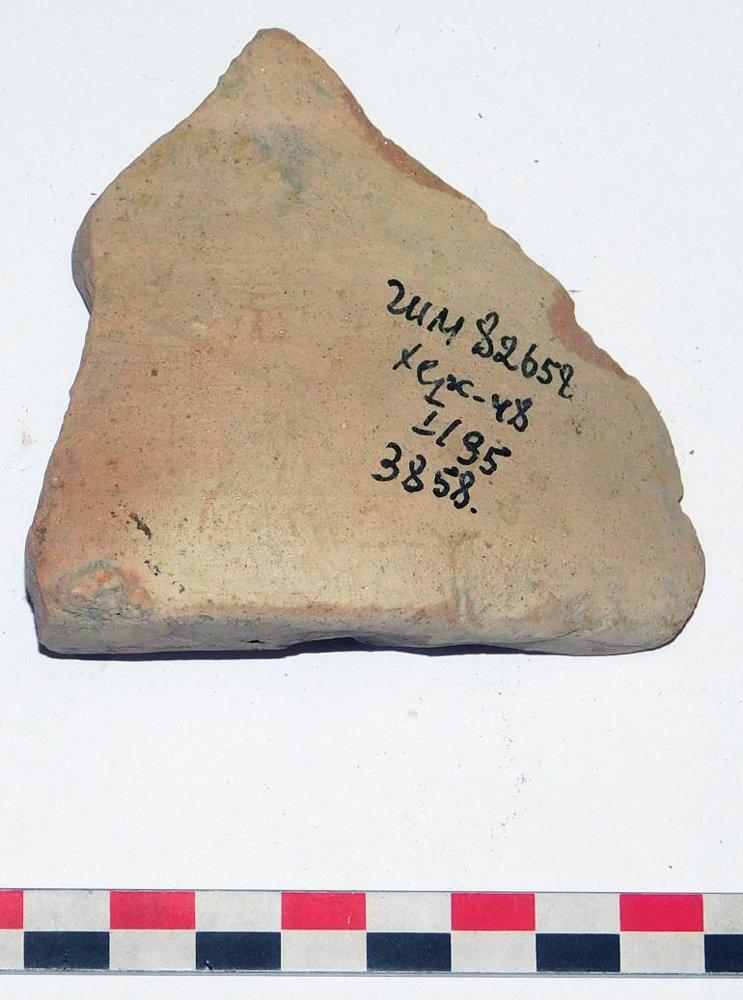 ГИМ 82658
Херс-48
II 95
3858.